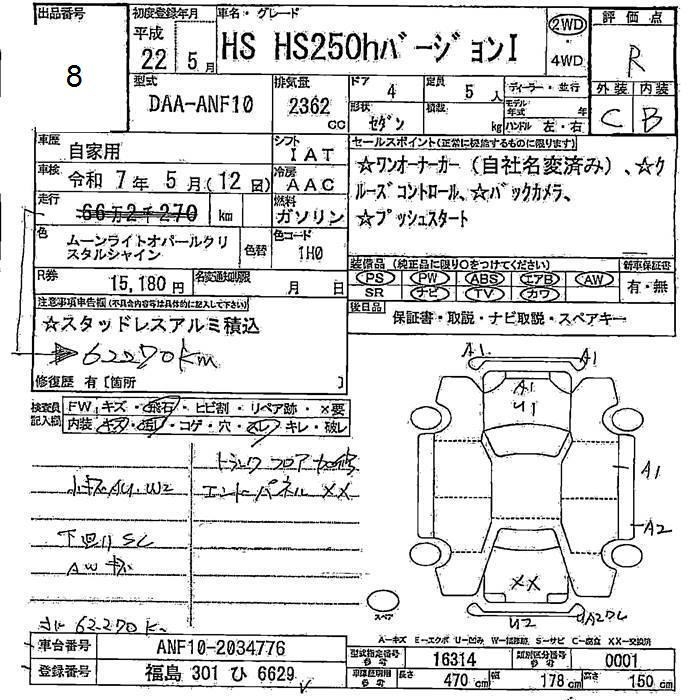 出品番号
8
初度登録年月
平成
22 5月
車名・グレード
HS HS250hバージョンI
2WD
・
4WD
評価点
R
外装 内装
C B
型式
DAA-ANF10
排気量
2362
CC
ドア
4
定員
5 人
形状
セダン
積載
kg
ディーラー・並行
モデル年式 年
ハンドル 左・右
車歴
自家用
シフト
IAT
車検
令和 7年 5月(12日)
冷房
AAC
走行
66万2千270 km
燃料
ガソリン
色
ムーンライトオパールクリスタルシャイン
色替
色コード
1H0
R券
15,180円
名変通知期限
月 日
セールスポイント(正常に機能するものに限ります)
☆ワンオーナーカー(自社名変済み)、☆クルーズコントロール、☆バックカメラ、
☆プッシュスタート
装備品(純正品に限り○をつけてください)
PS PW ABS エアB AW
SR ナビ TV カワ
新車保証書
有・無
後日品
保証書・取説・ナビ取説・スペアキー
注意事項申告欄(不具合内容等は具体的に記入して下さい)
☆スタッドレスアルミ積込
62270km
修復歴 有[箇所 ]
検査員記入欄
FW キズ・飛石・ヒビ割・リペア跡・×要
内装 キズ・汚レ・コゲ・穴・スレ・キレ・破レ
トランクフロア
エンドパネル XX
小キズAU.W2
下回りSC
AWキズ
62270K
A1
A1
A1
U1
A1
A2
XX
U2
スペア
A-キズ E-エクボ U-凹み W-補修跡 S-サビ C-腐食 XX-交換済
車台番号
ANF10-2034776
登録番号
福島 301 ひ 6629
型式指定番号
参考
16314
類別区分番号
参考
0001
車検証車両
参考
長さ
470 cm
幅
178 cm
高さ
150 cm